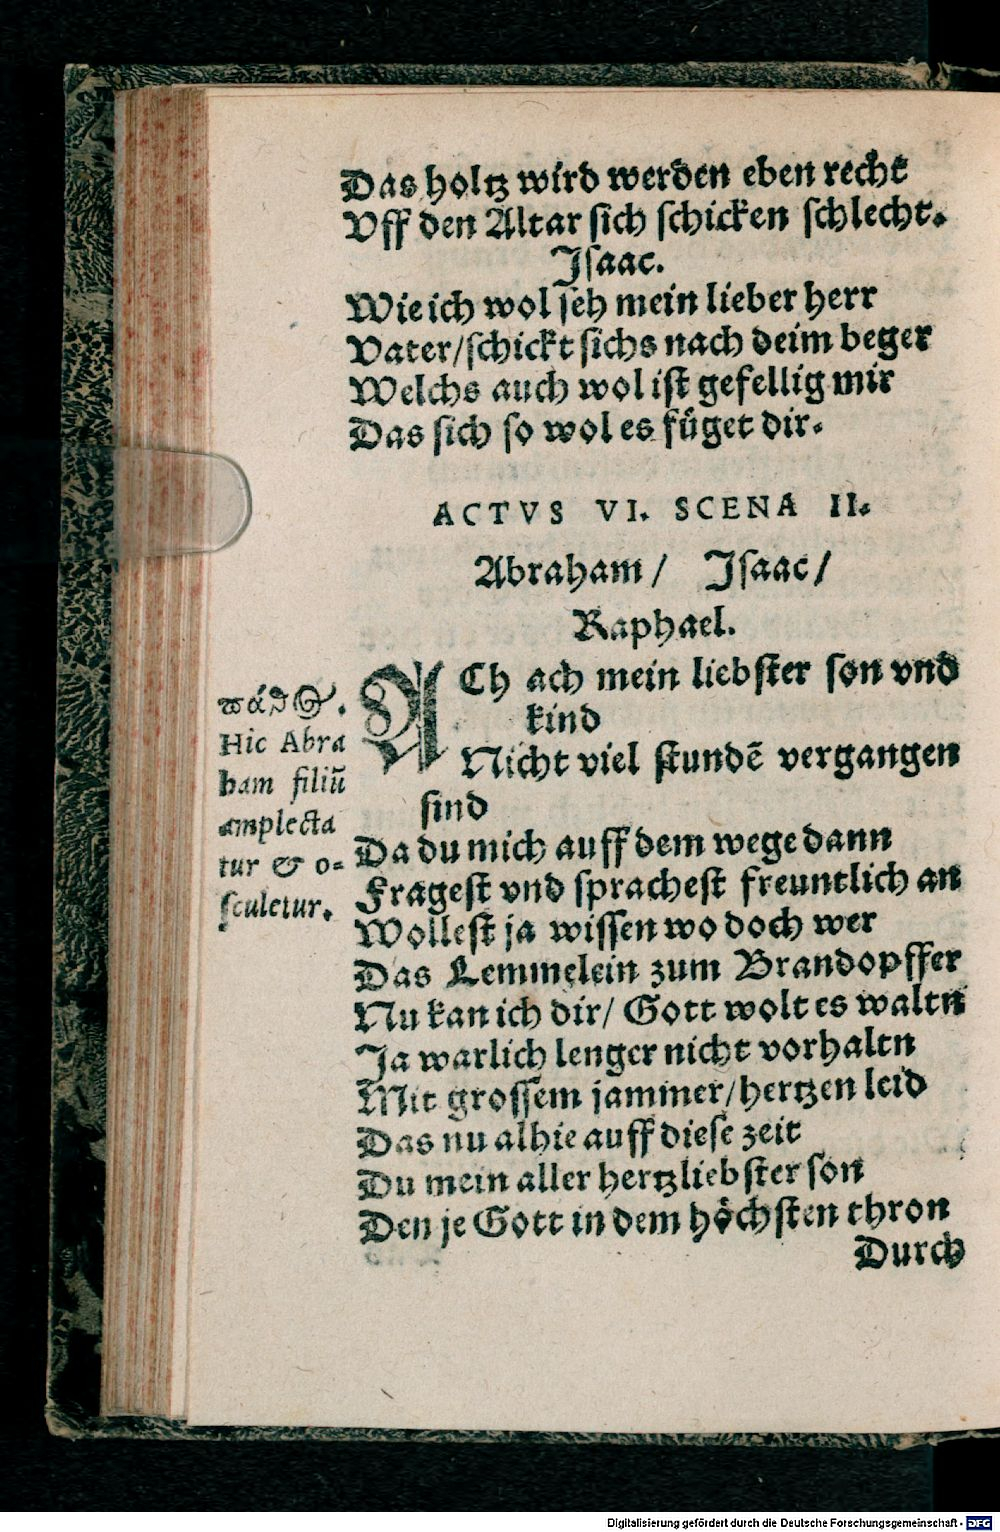 Das holtz wird werden eben recht
Vff den Altar sich schicken schlecht.
Isaac.
Wie ich wol seh mein lieber herr
Vater/schickt sichs nach deim beger
Welchs auch wol ist gefellig mir
Das sich so wol es füget dir.
ACTVS VI. SCENA II.
Abraham/ Isaac/
Raphael.
ACh ach mein liebster son vnd
kind
Nicht viel stundē vergangen
sind
Da du mich auff dem wege dann
Fragest vnd sprachest freuntlich an
Wollest ja wissen wo doch wer
Das Lemmelein zum Brandopffer
Nu kan ich dir/ Gott wolt es waltn
Ja warlich lenger nicht vorhaltn
Mit grossem jammer/hertzen leid
Das nu alhie auff diese zeit
Du mein aller hertzliebster son
Den je Gott in dem höchsten thron
Durch
Hic Abra
ham filiū
amplecta
tur & o-
sculetur.
Digitalisierung gefördert durch die Deutsche Forschungsgemeinschaft - DFG